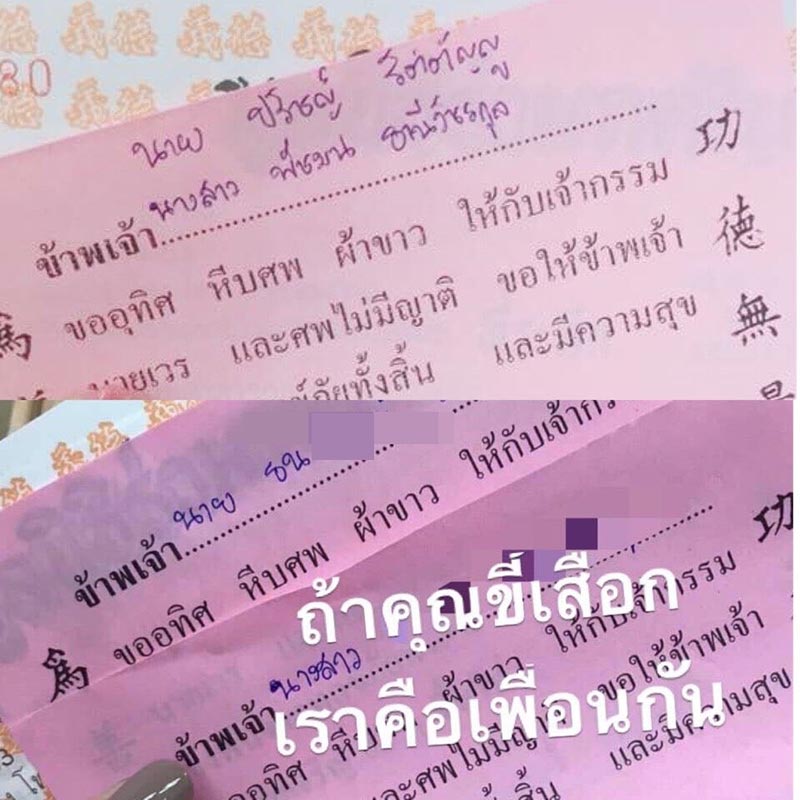 80
นาย
นางสาว พัชมน
ข้าพเจ้า
ขออุทิศ หีบศพ ผ้าขาว ให้กับเจ้ากรรม
นายเวร และศพไม่มีญาติ ขอให้ข้าพเจ้า
ภัยทั้งสิ้น และมีความสุข
功德無
為
นาย ธน
ข้าพเจ้า
ขออุทิศ หีบศพ ผ้าขาว ให้กับเจ้ากร
為
功
ถ้าคุณขี้เสือก
เราคือเพื่อนกัน
นางสาว
ข้าพเจ้า
ขออุทิศ หีบศพ ผ้าขาว ให้กับเจ้ากรรม
และศพไม่มีญาติ ขอให้ข้าพเจ้า
สิ้น และมีความสุข